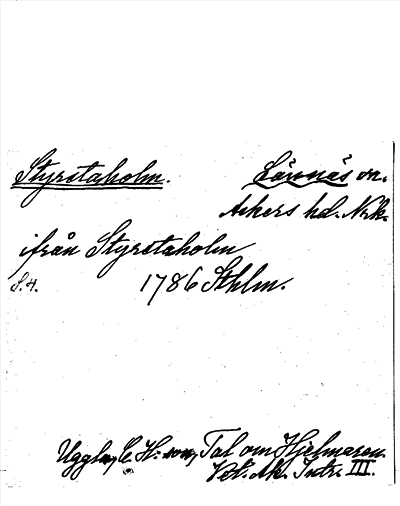 Styrstaholm.
Lännäs sn.
Askers hd. Nrk.
ifrån Styrstaholm
S. 4. 1786 Sthlm.
Uggla, C. H:son, Tal om Hjelmaren.
Vet. Ak. Intr. III.